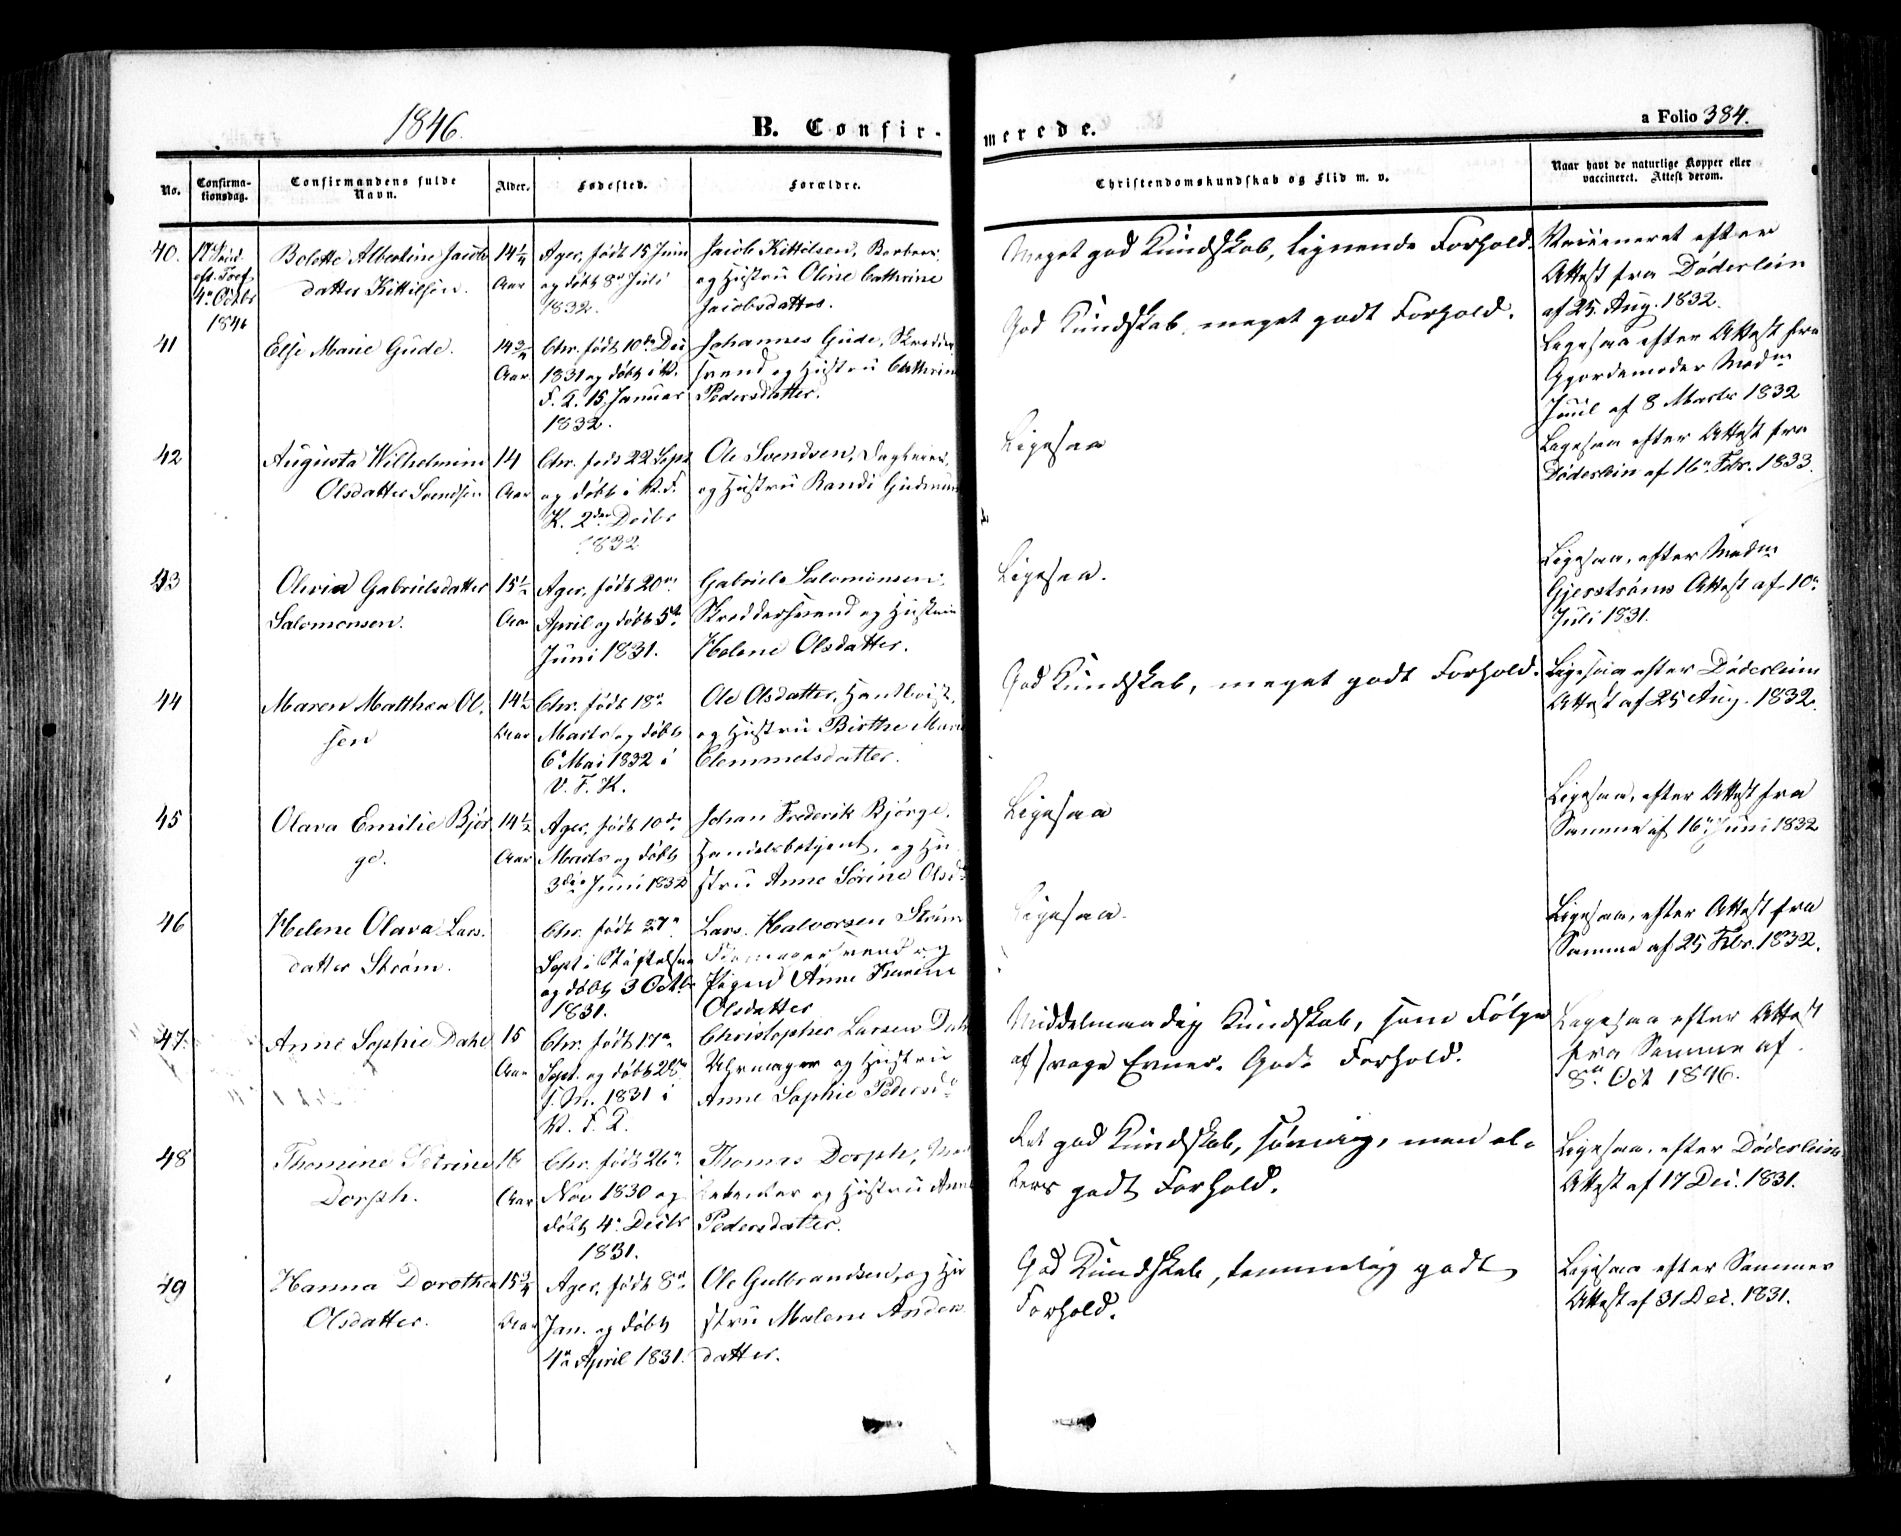 1846.
B. Confir-
merede.
a Folio 384.
No.
Confirma-
tionsdag.
Confirmandens fulde
Navn.
Alder.
Fødested.
Forældre.
Christendomskundskab og Flid m. v.
Naar havt de naturlige Kopper eller
vaccineret. Attest derom.
40.
17 Sønd.
eft. Tref.
4de Octbr
1846
Bolette Albertine Jacobs
datter Kittilsen.
14 1/4
Aar
Ager, født 15 Juni
og døbt 8de Juli
1832.
Jacob Kittilsen, Barber,
og Hustru Oline Cathrine
Jacobsdatter.
Meget god Kundskab, lignende Forhold.
Vaccineret efter
Attest fra Døderlein
af 25 Aug. 1832.
41
Else Marie Gude.
14 3/4
Aar
Chr. født 10de Dec
1831 og døbt i R.
F. K. 15 Januar
1832.
Johannes Gude, Skrædder
svend og Hustru Cathrine
Pedersdatter.
God Kundskab, meget godt Forhold.
Ligesaa efter Attest fra
Gjordemoder Madm
Juul af 8 Marts 1832
42
Augusta Wilhelmine
Olsdatter Svendsen
14
Aar
Chr. født 22 Sept
og døbt i V. F.
K. 2den Decbr
1832
Ole Svendsen, Dagleier,
og Hustru Randi Gudmun
Ligesaa
Ligesaa efter Attest fra
Døderlein af 16de Febr. 1833.
43
Olivia Gabrielsdatter
Salomonsen.
15 1/2
Aar
Ager, født 20de
April og døbt 5te
Juni 1831.
Gabriel Salomonsen,
Skræddersvend og Hustru
Helene Olsdatter.
Ligesaa.
Ligesaa, efter Madm
Gjerstrøms Attest af 10de
Juli 1831.
44
Maren Matthea Ol-
sen
14 1/2
Aar
Chr. født 18de
Marts og døbt
6te Mai 1832 i
V. F. K.
Ole Olsdatter,
og Hustru Birthe Marie
Clemmetsdatter.
God Kundskab, meget godt Forhold.
Ligesaa efter Døderleins
Attest af 25 Aug. 1832.
45
Olava Emilie Bjør
ge.
14 1/2
Aar
Ager, født 10de
Marts og døbt
3die Juni 1832
Johan Frederik Bjørge,
Handelsbetjent, og Hu
stru Anne Sørine Olsd
Ligesaa
Ligesaa, efter Attest fra
Samme af 16de Juni 1832
46
Helene Olava Lars-
datter Strøm.
Chr. født 27de
Sept i Stiftelsen
og døbt 3 Octbr
1831.
Lars Halvorsen Strøm
og
Pigen Anne Karine
Olsdatter
Ligesaa.
Ligesaa, efter Attest fra
Samme af 25 Febr. 1832.
47.
Anne Sophie Dahl
15
Aar
Chr. født 17de
Sept. og døbt 28de
s. M. 1831 i
V. F. K.
Christopher Larsen Dahl
Uhrmager og Hustru
Anne Sophie Pedersd
Middelmaadig Kundskab, som Følge
af svage Evner. Godt Forhold.
Ligesaa efter Attest
fra Samme af
8de Oct 1846.
48
Thomine Petrine
Dorph.
16
Aar
Chr. født 26de
Nov 1830 og
døbt 4de Decbr
1831.
Thomas Dorph,
og Hustru Anne
Pedersdatter.
Ret god Kundskab, men el-
lers godt Forhold.
Ligesaa, efter Døderleins
Attest af 17 Dec. 1831.
49
Hanna Dorothea
Olsdatter.
15 3/4
Aar
Ager, født 8de
Jan. og døbt
4de April 1831.
Ole Gulbrandsen, og Hu
stru Malene Anders
datter.
God Kundskab, temmelig godt
Forhold.
Ligesaa efter Sammes
Attest af 31 Dec. 1831.